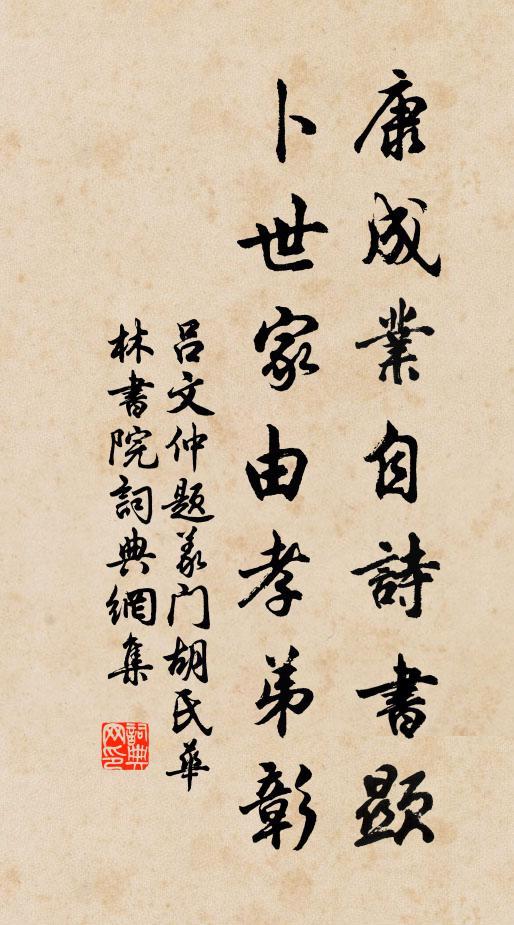 康成業自詩書顯
卜世家由孝弟彰
吕文仲题義门胡氏華
林書院詞典網集
詞典网印